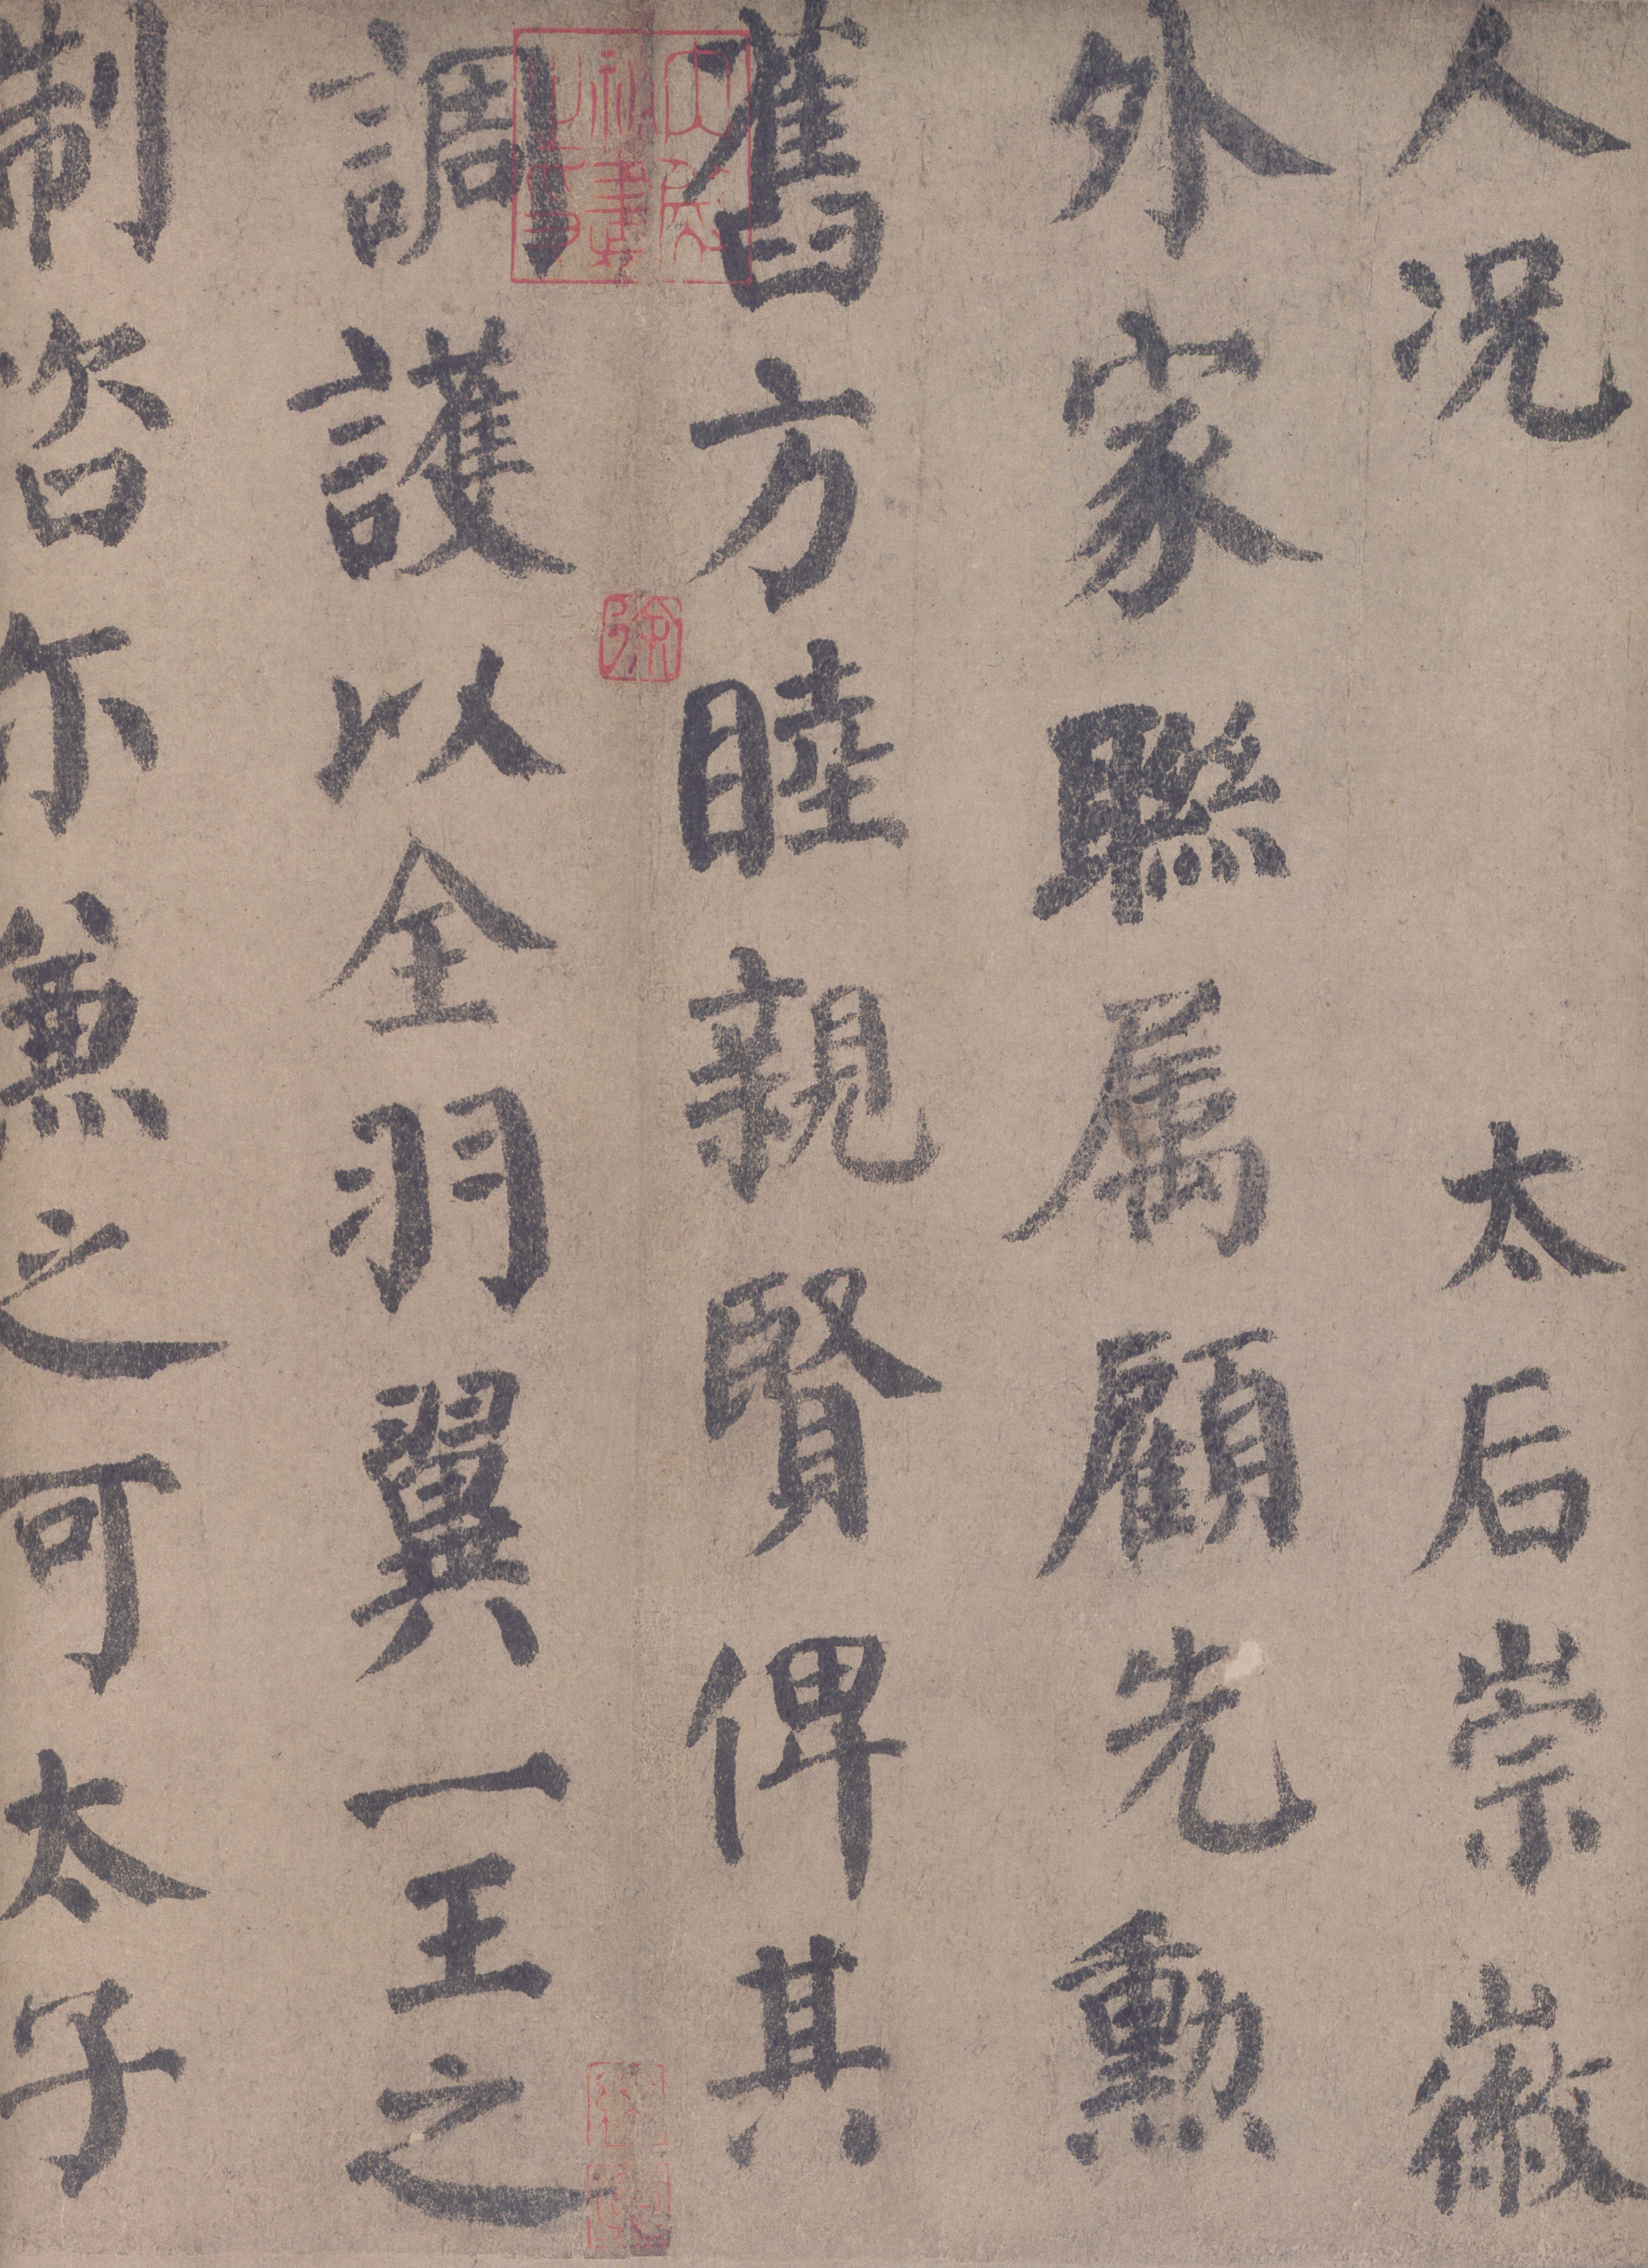 人況 太后崇徽
外家聯属顧先勳
舊方睦親賢俾其
調護以全羽翼一王之
制咨尓兼之可太子